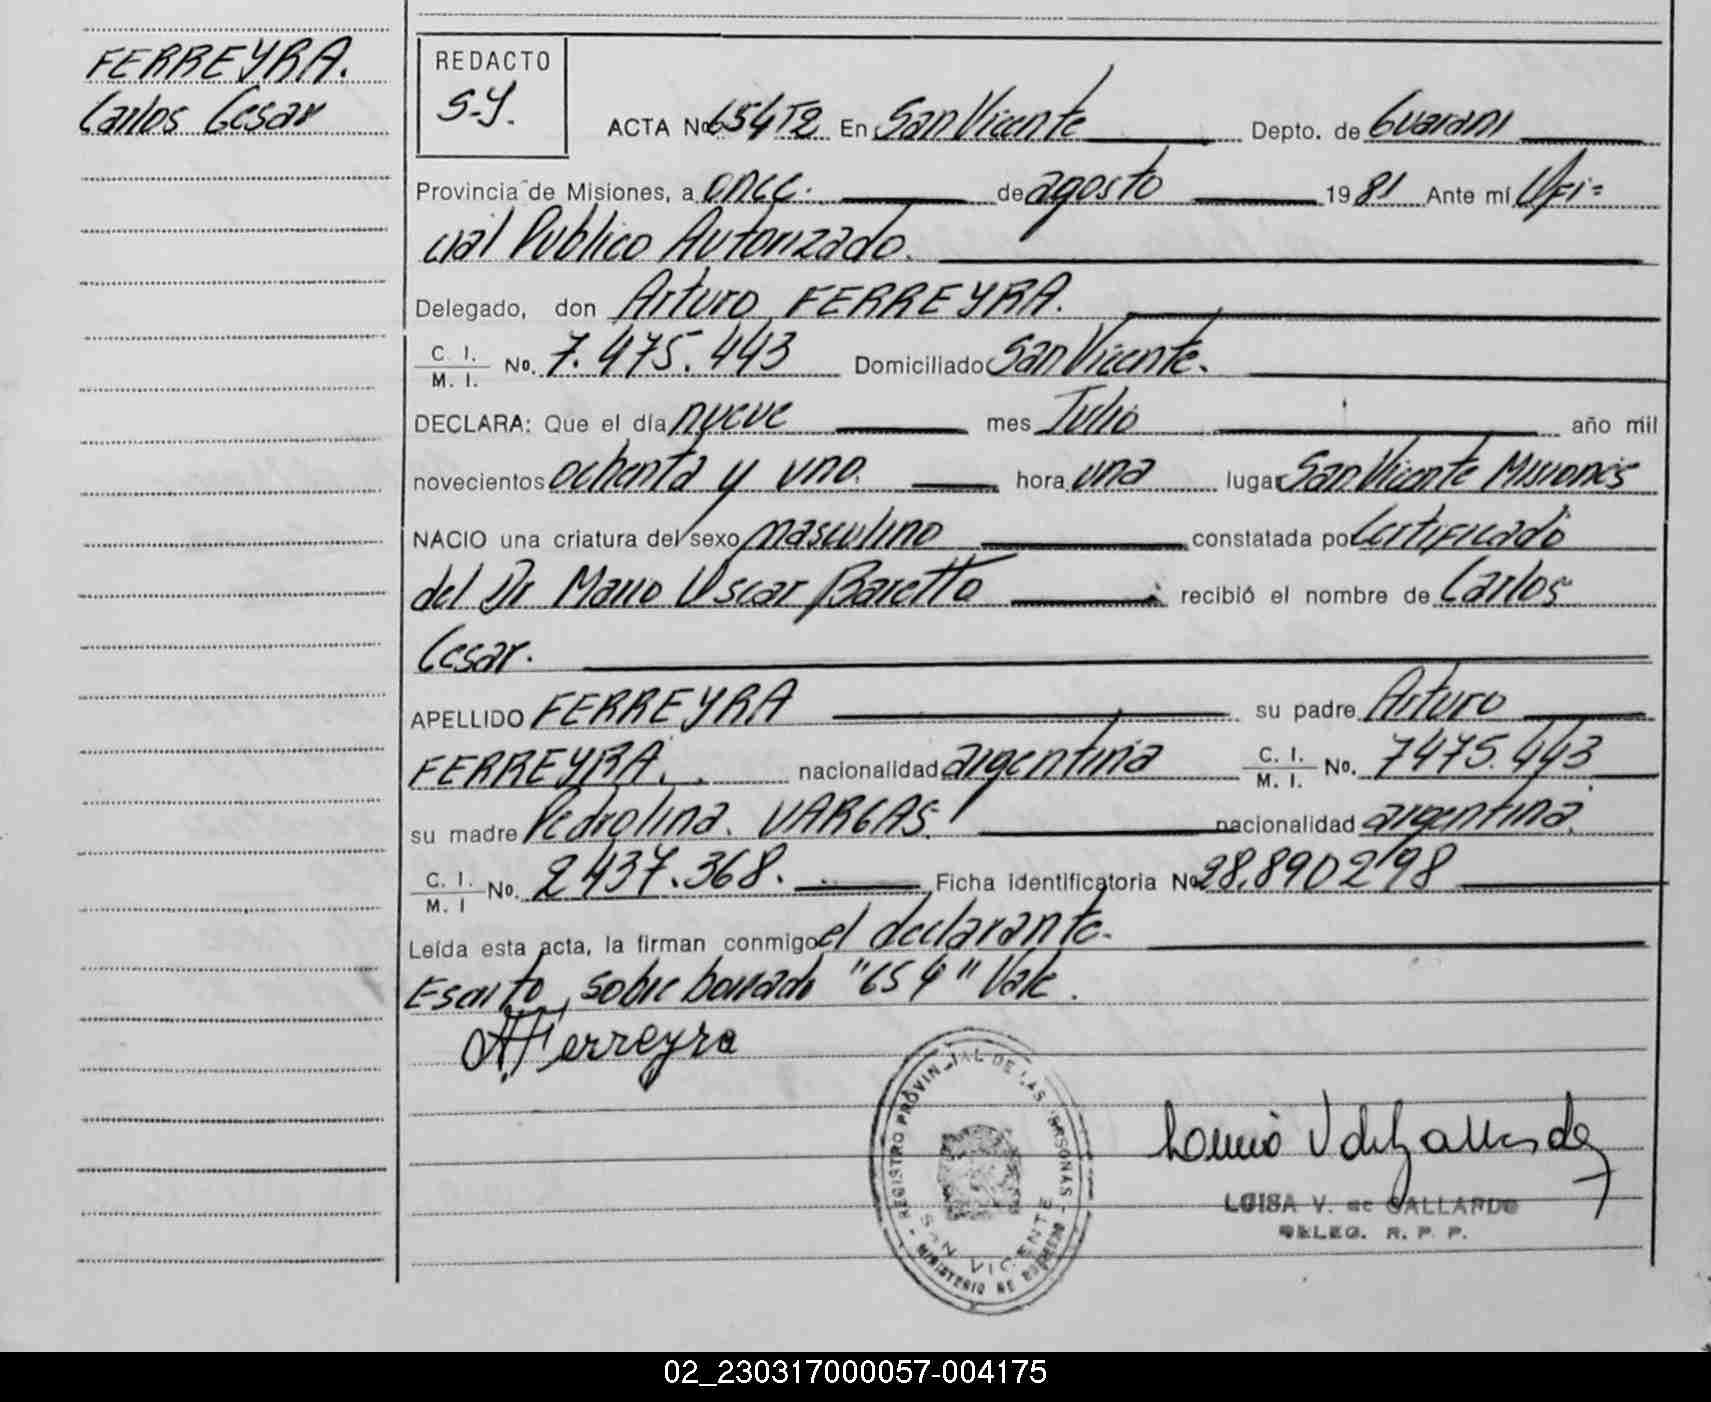 FERREYRA.
Carlos Cesar
REDACTO
S-Y.
ACTA No 654T2 En San Vicente Depto. de Guarani
Provincia de Misiones, a once. de agosto 1981 Ante mí Ofi=
cial Publico Autorizado.
Delegado, don Arturo FERREYRA.
C. I. / M. I. No. 7.475.443 Domiciliado San Vicente.
DECLARA: Que el día nueve mes Julio año mil
novecientos ochenta y uno. hora una lugar San Vicente Misiones
NACIO una criatura del sexo masculino constatada por Certificado
del Dr Mario Oscar Baretto recibió el nombre de Carlos
Cesar.
APELLIDO FERREYRA su padre Arturo
FERREYRA. nacionalidad argentina C. I. / M. I. No. 7475.443
su madre Pedrolina. VARGAS. nacionalidad argentina.
C. I. / M. I No. 2437.368. Ficha identificatoria No 28.890298
Leída esta acta, la firman conmigo el declarante.
Escrito sobre borrado "654" Vale.
A. Ferreyra
REGISTRO PROVINCIAL DE LAS PERSONAS
SAN VICENTE
MINISTERIO DE GOBIERNO
LUISA V. de GALLARDO
DELEG. R. P. P.
02_230317000057-004175